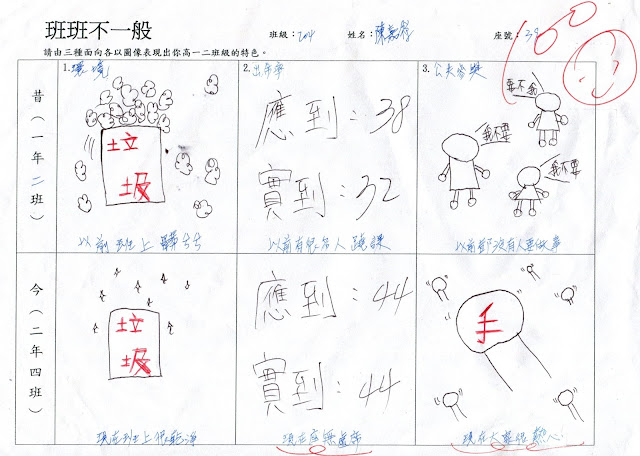 班班不一般
班級：204 姓名：陳 座號：39
請由三種面向各以圖像表現出你高一二班級的特色。
100
昔（一年二班）
1.環境
垃
圾
以前班上髒兮兮
2.出席率
應到：38
實到：32
以前有很多人蹺課
3.公共participation
我不要
我不要
以前都沒有人要做事
今（二年四班）
垃
圾
現在班上很乾淨
應到：44
實到：44
現在座無虛席
手
現在大家很熱心